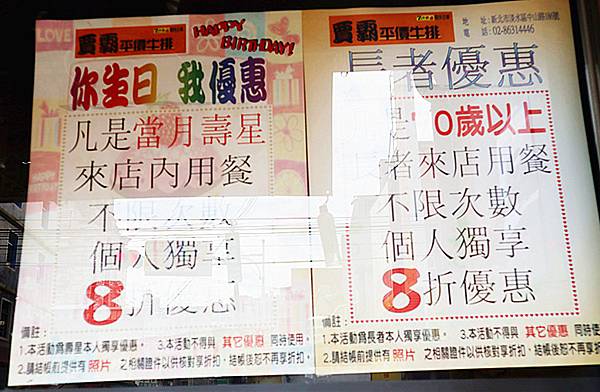 賈霸平價牛排
HAPPY BIRTHDAY!
你生日 我優惠
凡是當月壽星
來店內用餐
不限次數
個人獨享
8折優惠
備註：
1.本活動為壽星本人獨享優惠。 3.本活動不得與 其它優惠 同時使用。
2.請結帳前提供有 照片 之相關證件以供核對享折扣，結帳後恕不再享折扣。
賈霸平價牛排
地 址：新北市淡水區中山路
電 話：02-86314446
長者優惠
70歲以上
長者來店用餐
不限次數
個人獨享
8折優惠
備註：
1.本活動為長者本人獨享優惠。 3.本活動不得與 其它優惠 同時使用
2.請結帳前提供有 照片 之相關證件以供核對享折扣，結帳後恕不再享折扣